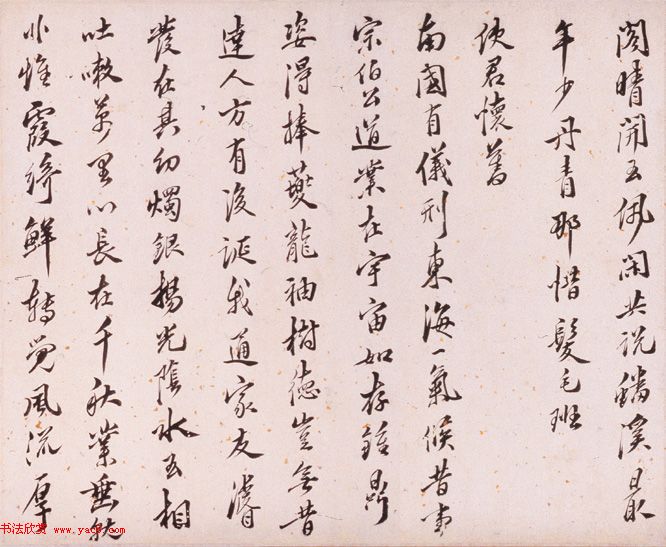 阁晴開玉佩閑共説蟠溪最
年少丹青那惜髮毛班
使君懷舊
南國有儀刑東海一氣候昔事
宗伯公道業在宇宙如存鐘鼎
姿得捧夔龍袖樹德豈無昔
達人方有後誕我通家友濬
發在其幼燭銀揚光蔭水玉相
吐嗽萬里心長在千秋業垂就
非惟霞綺鮮轉覺風流厚
书法欣赏 www.yac8.com